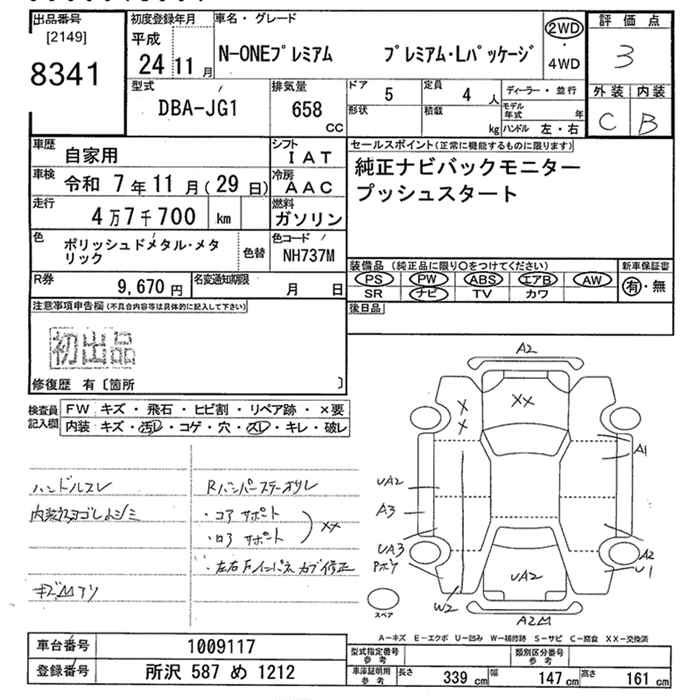 出品番号
[2149]
8341
初度登録年月
平成
24 11 月
車名・グレード
N-ONEプレミアム プレミアム・Lパッケージ
2WD
・
4WD
評価点
3
外装 内装
C B
型式
DBA-JG1
排気量
658
CC
ドア
5
定員
4 人
形状
積載
kg
ディーラー・並行
モデル年式 年
ハンドル 左・右
車歴
自家用
シフト
IAT
車検
令和 7年11月(29日)
冷房
AAC
走行
4万7千700 km
燃料
ガソリン
色
ポリッシュドメタル・メタリック
色替
色コード
NH737M
R券
9,670 円
名変通知期限
月 日
セールスポイント(正常に機能するものに限ります)
純正ナビバックモニター
プッシュスタート
装備品 (純正品に限り○をつけてください)
PS PW ABS エアB AW
SR ナビ TV カワ
新車保証書
有・無
後日品
注意事項申告欄(不具合内容等は具体的に記入して下さい)
初出品
修復歴 有〔箇所 〕
検査員記入欄
FW キズ・飛石・ヒビ割・リペア跡・×要
内装 キズ・汚レ・コゲ・穴・スレ・キレ・破レ
ハンドルスレ
Rバンパーステーズレ
・コアサポート
××
A2
××
×
×
A1
UA2
A3
UA3
W2
UA2
A2
U1
スペア
A-キズ E-エクボ U-凹み W-補修跡 S-サビ C-腐食 XX-交換済
車台番号
1009117
登録番号
所沢 587 め 1212
型式指定番号
参考
類別区分番号
参考
車庫証明用
参考
長さ
339 cm
幅
147 cm
高さ
161 cm